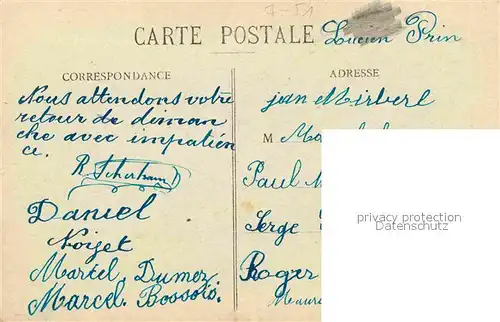 7-51
CARTE POSTALE
Lucien Prin
CORRESPONDANCE
Nous attendons votre
retour de diman
che avec impatien
ce.
Daniel
Noizet
Martel, Dumez
Marcel. Bossois.
ADRESSE
jean Mirberl
M
Paul
Serge
Roger
privacy protection
Datenschutz